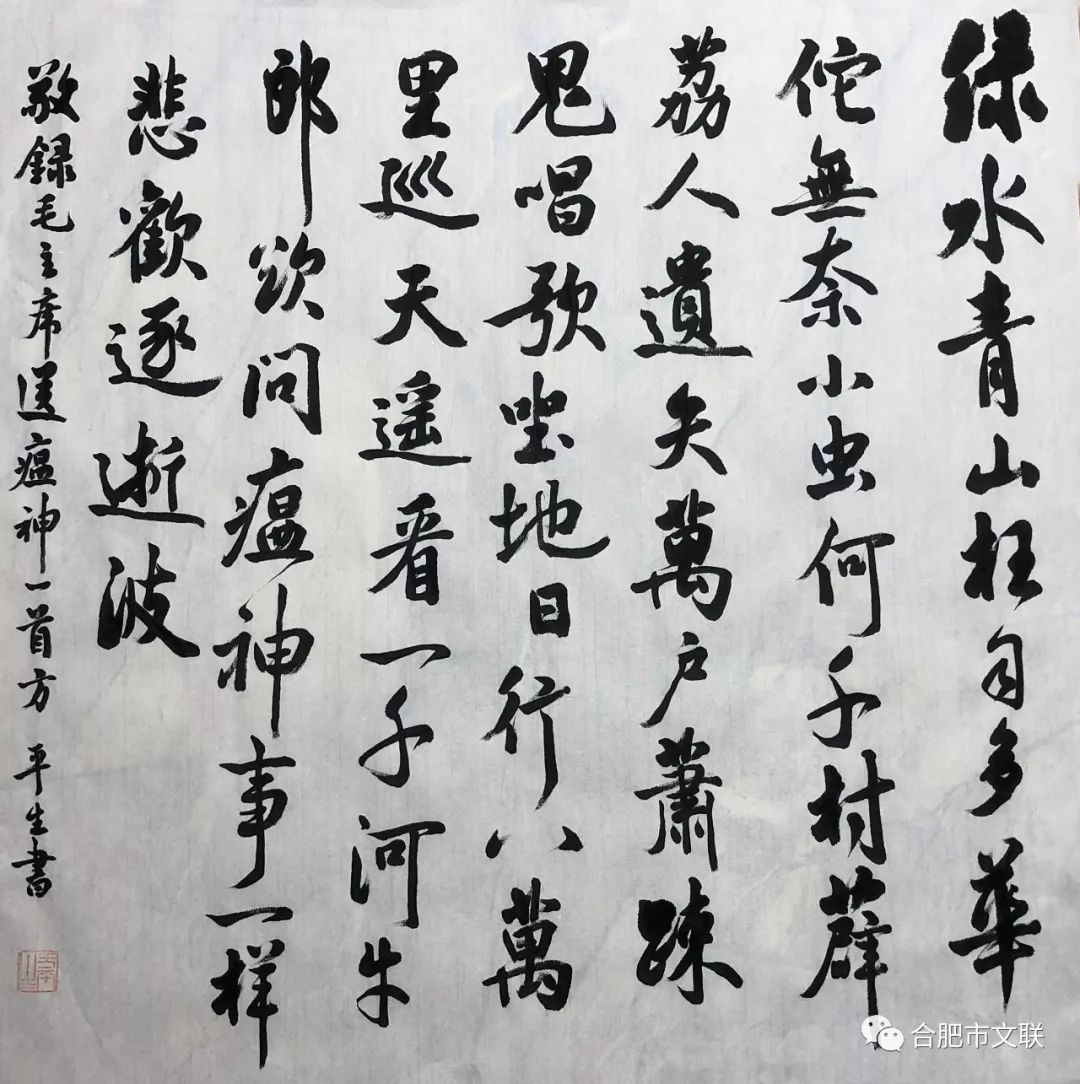 绿水青山枉自多華
佗無奈小虫何千村薜
荔人遺矢萬户蕭踈
鬼唱歌坐地日行八萬
里巡天遥看一千河牛
郎欲问瘟神事一样
悲歡逐逝波
敬録毛主席送瘟神一首方 平生書
合肥市文联